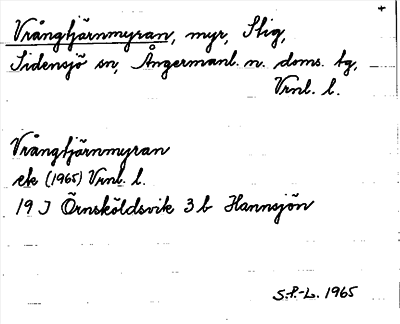 +
Vrångtjärnmyran, myr, Stig,
Sidensjö sn, Ångermanl. n. doms. tg,
Vrnl. l.
Vrångtjärnmyran
ek (1965) Vrnl. l.
19 J Örnsköldsvik 3 b Hannsjön
S.P.-L. 1965